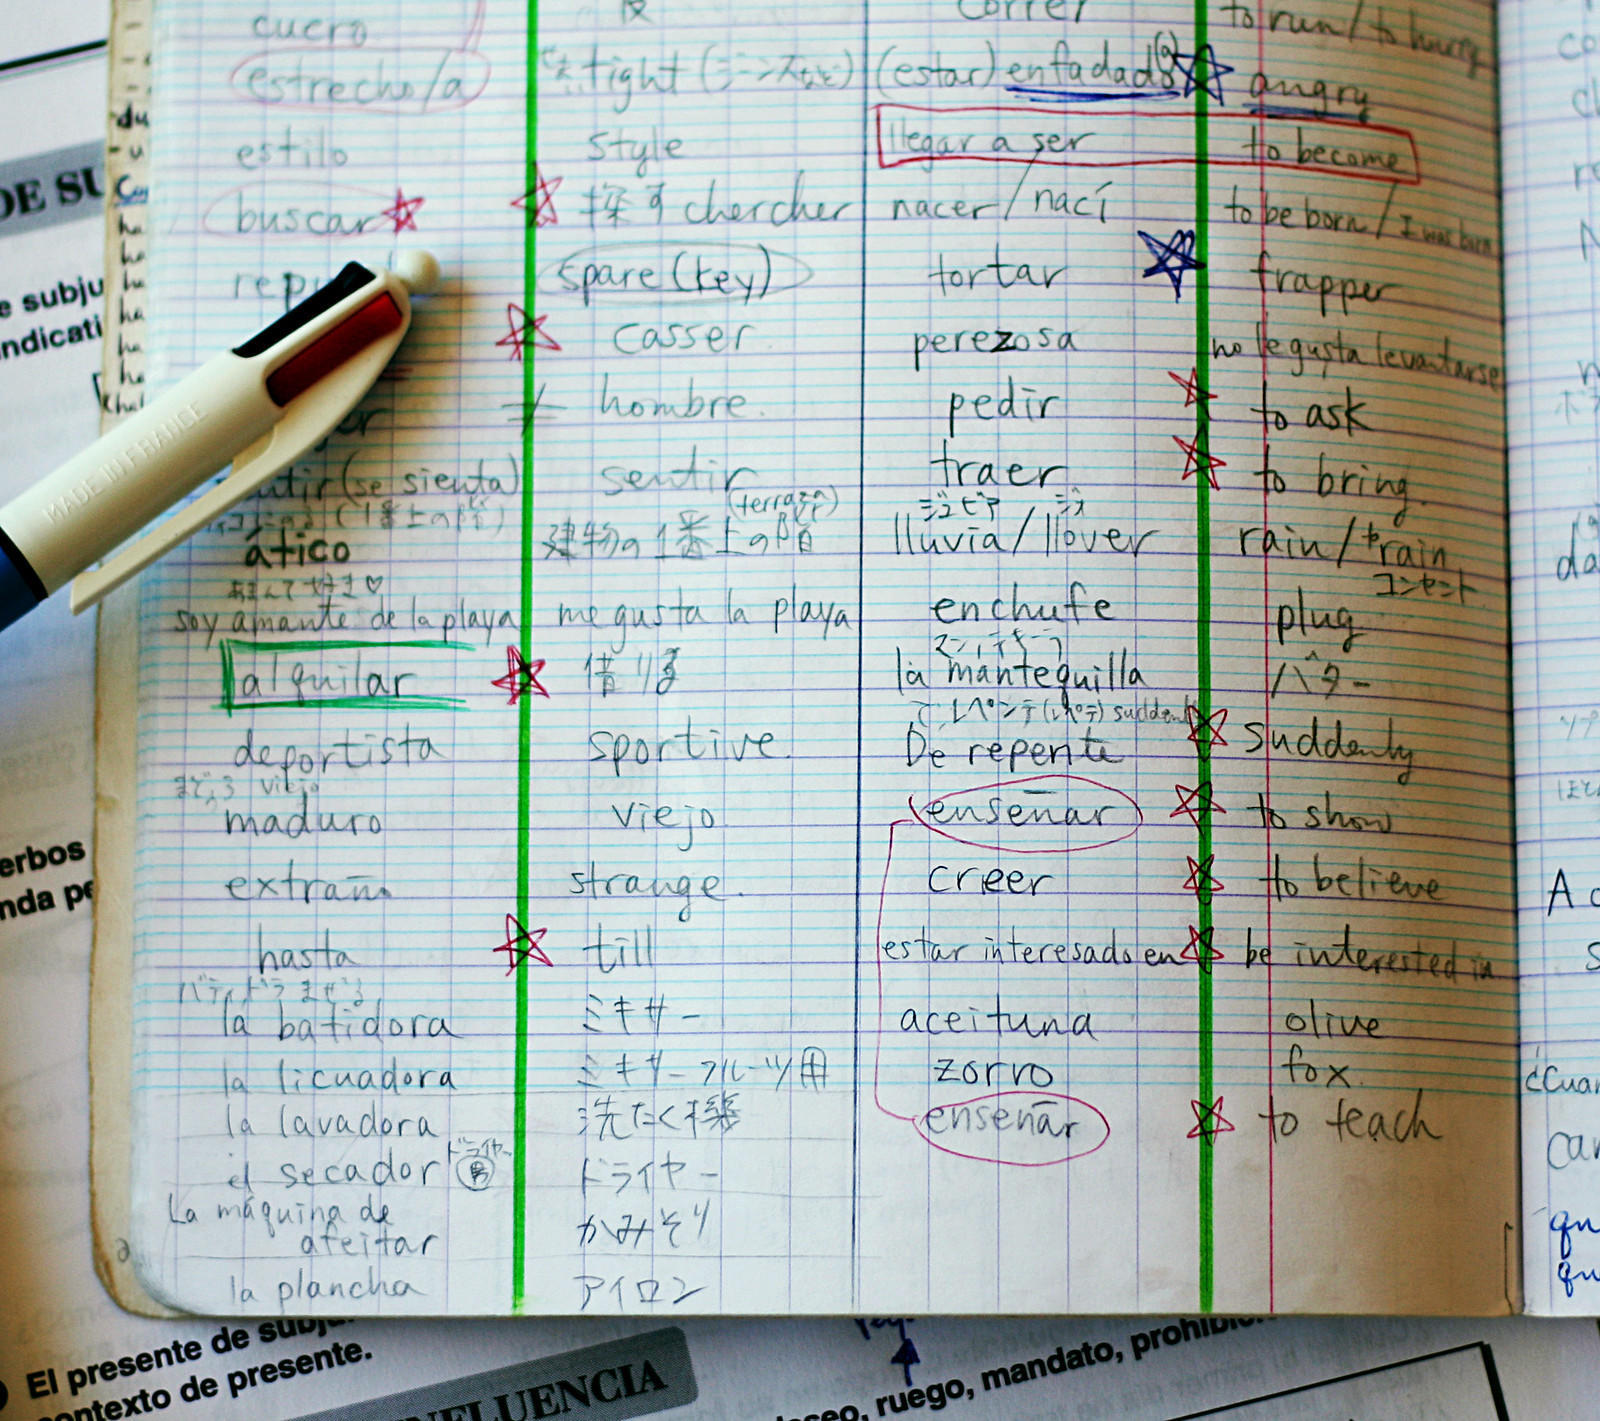 cuero 皮
correr to run / to hurry
estrecho/a tight (ジーンズなど)
(estar) enfadado(a) angry
estilo style
llegar a ser to become
buscar 探す chercher
nacer / nací to be born / I was born
spare (key)
tortar frapper
casser
perezosa no le gusta levantarse
≠ hombre.
pedir to ask
(se sienta) sentir
traer to bring
(1番上の階) (terraza)
ジュビア ジオ
ático 建物の1番上の階
lluvia / llover rain / to rain
コンセント
soy amante de la playa me gusta la playa
enchufe plug
alquilar 借りる
la mantequilla バター
(レペテ) suddenly
deportista sportive.
De repente suddenly
viejo
maduro viejo
enseñar to show
extraño strange.
creer to believe
hasta till
estar interesado en be interested in
バティドラ まぜる
la batidora ミキサー
aceituna olive
la licuadora ミキサーフルーツ用
zorro fox.
la lavadora 洗たく機
enseñar to teach
ドライヤー
el secador 男 ドライヤー
La máquina de afeitar かみそり
la plancha アイロン
MADE IN FRANCE
DE SU
e subju
ndicati
erbos
nda pe
El presente de subju
contexto de presente.
NFLUENCIA
deseo, ruego, mandato, prohibic